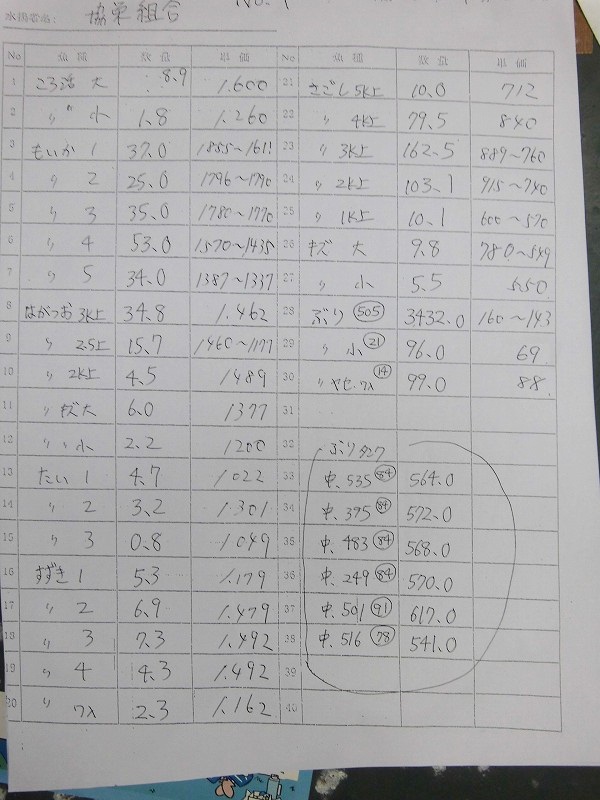 No. 1
水揚港名: 協栄組合
No 魚種 数量 単価 No 魚種 数量 単価
1 ころ活 大 8.9 1.600 21 さごし 5k上 10.0 712
2 〃 小 1.8 1.260 22 〃 4k上 79.5 840
3 もいか 1 37.0 1855~1611 23 〃 3k上 162.5 889~760
4 〃 2 25.0 1796~1790 24 〃 2k上 103.1 915~740
5 〃 3 35.0 1780~1770 25 〃 1k上 10.1 600~570
6 〃 4 53.0 1570~1435 26 キズ 大 9.8 780~549
7 〃 5 34.0 1387~1337 27 〃 小 5.5 550
8 はがつお 3k上 34.8 1.462 28 ぶり 505 3432.0 160~143
9 〃 2.5上 15.7 1460~1177 29 〃 小 21 96.0 69
10 〃 2k上 4.5 1489 30 〃 ヤセ.ワレ 14 99.0 88
11 〃 キズ大 6.0 1377 31
12 〃 〃 小 2.2 1200 32 ぶりタンク
13 たい 1 4.7 1022 33 中.535 84 564.0
14 〃 2 3.2 1.301 34 中.395 84 572.0
15 〃 3 0.8 1.049 35 中.483 84 568.0
16 すずき 1 5.3 1.179 36 中.249 84 570.0
17 〃 2 6.9 1.479 37 中.501 91 617.0
18 〃 3 7.3 1.492 38 中.516 78 541.0
19 〃 4 4.3 1.492 39
20 〃 ワレ 2.3 1.162 40